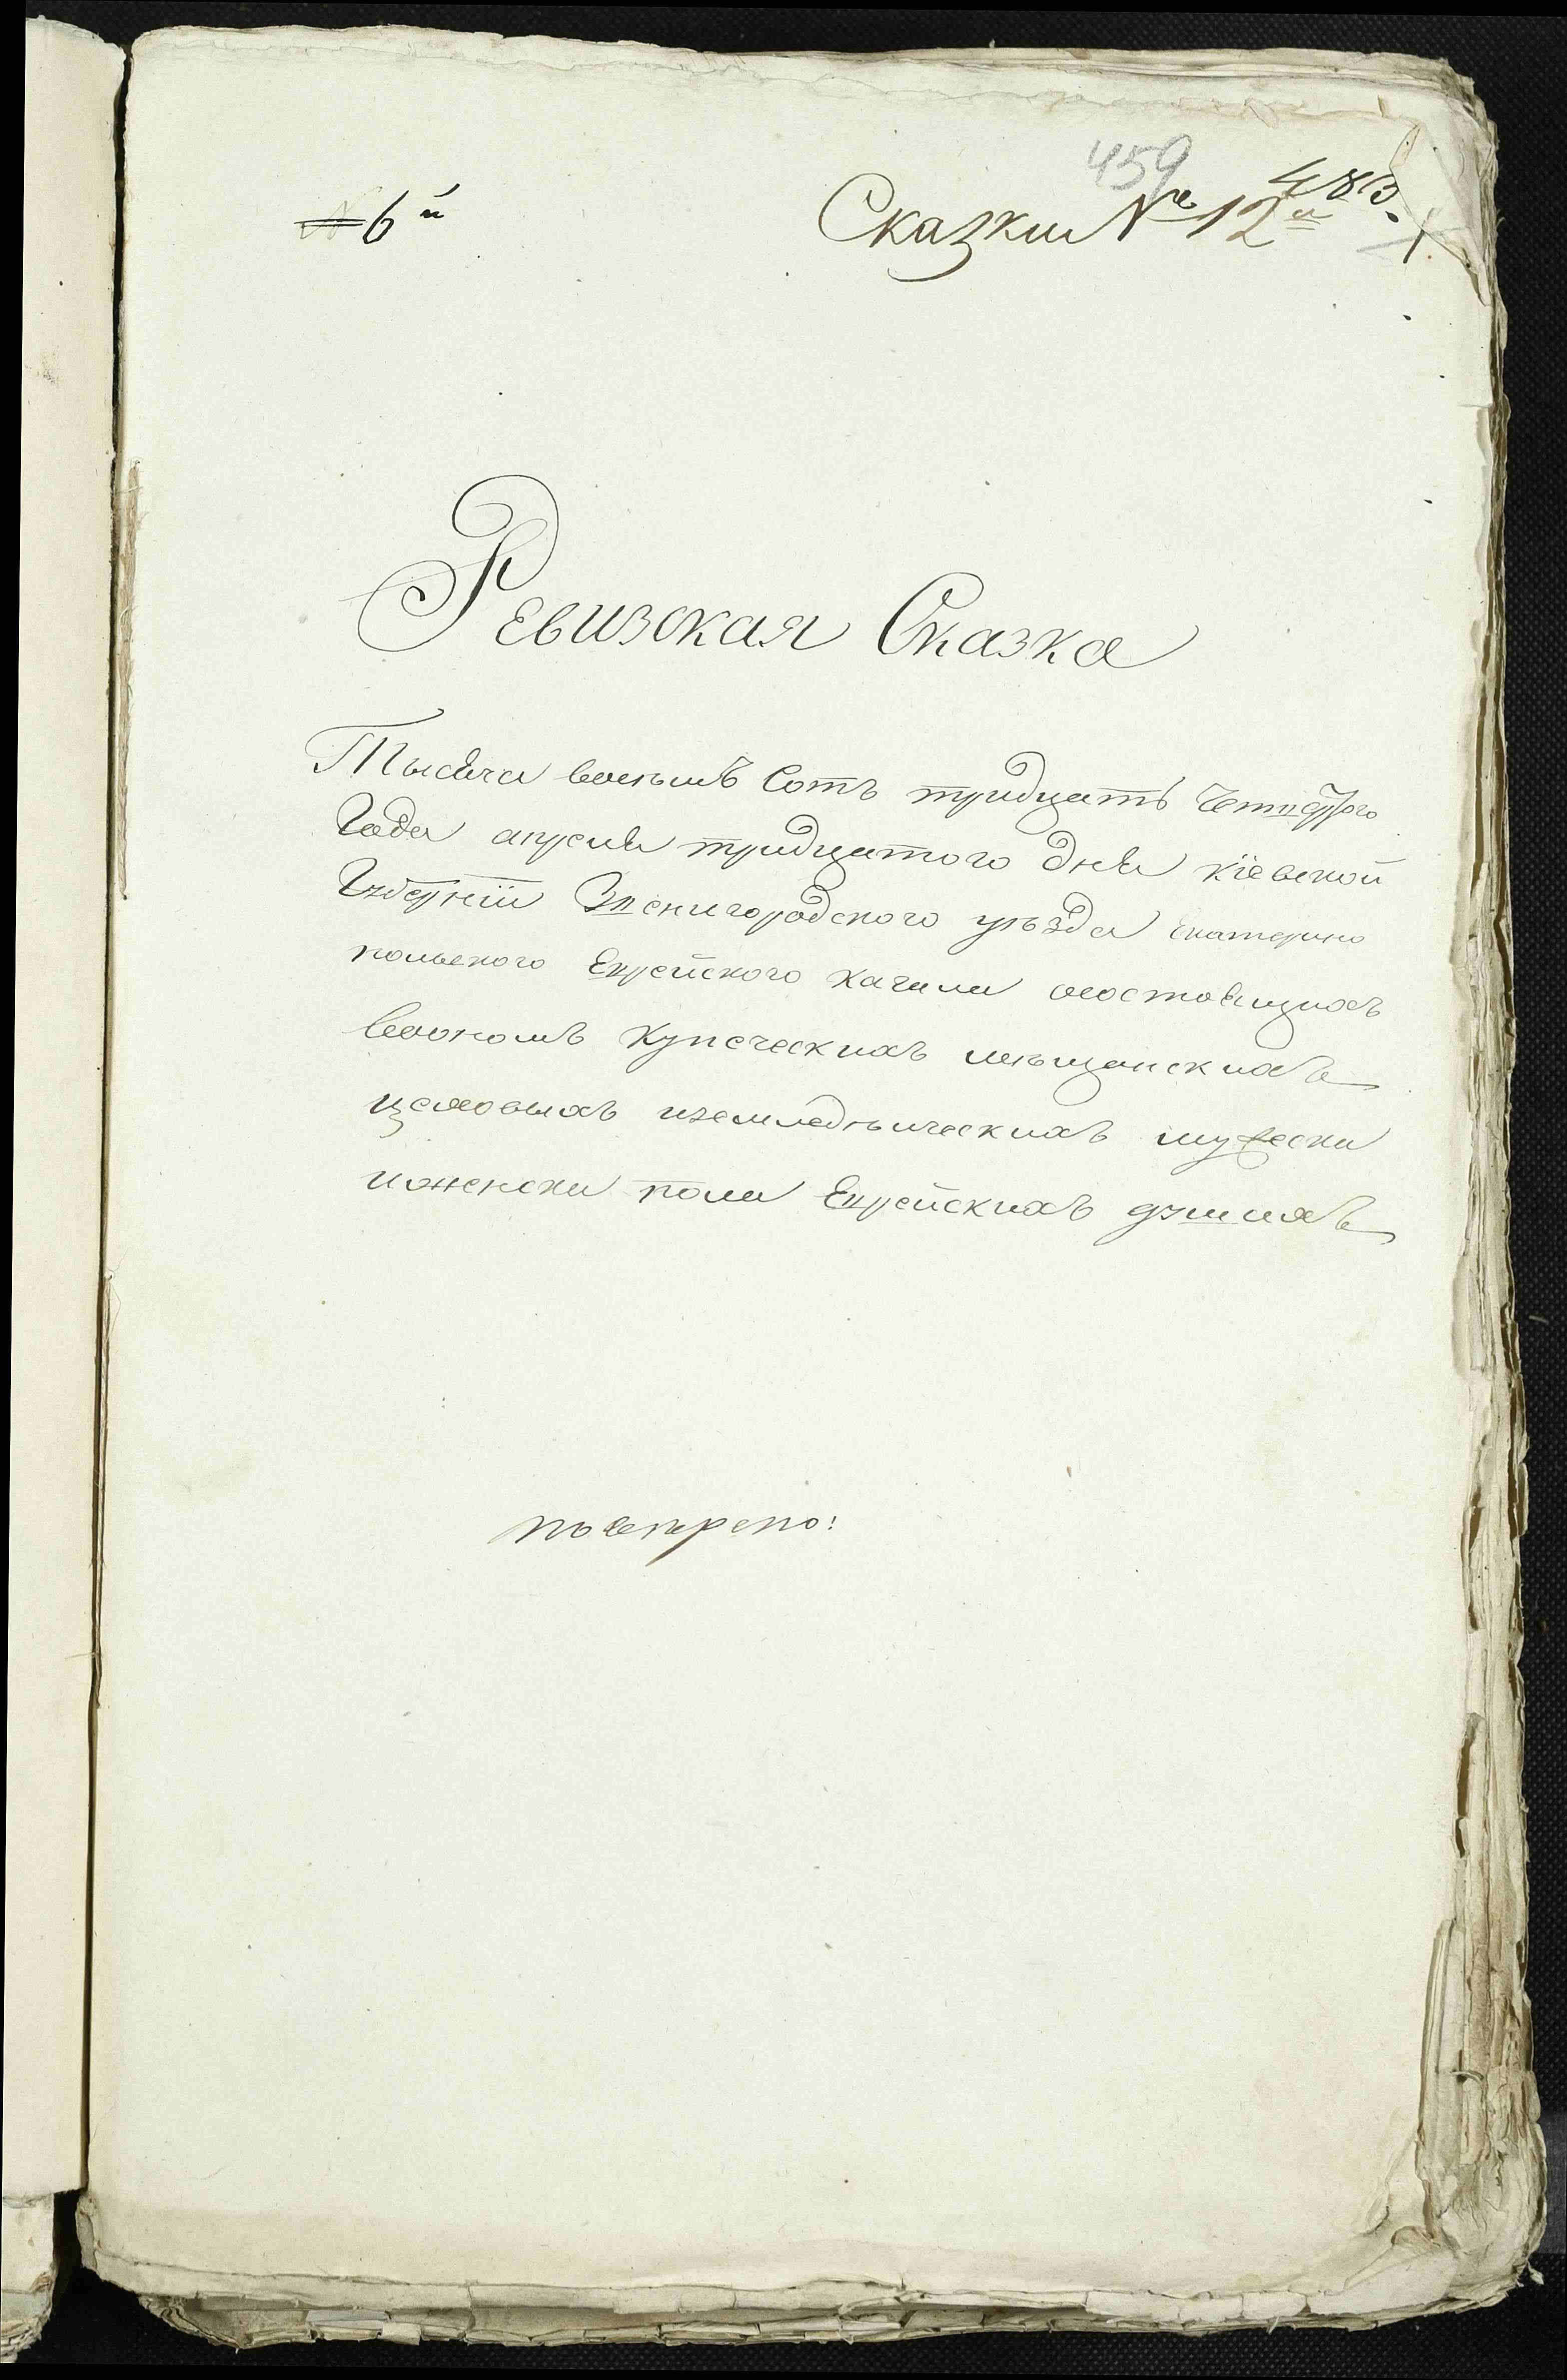 459
№ 6й
Сказки № 12й 483.
Ревизская Сказка
Тысяча восемь Сотъ тридцать Четвертого
Года апреля тридцатого дня кіевской
Губерніи Звенигородского уѣзда Екатерино
польского Еврейского Кагала осостоящихъ
воономъ Купеческихъ мѣщанскихъ
цеховыхъ иземледѣлческихъ мужеска
иженска пола Еврейскихъ душахъ